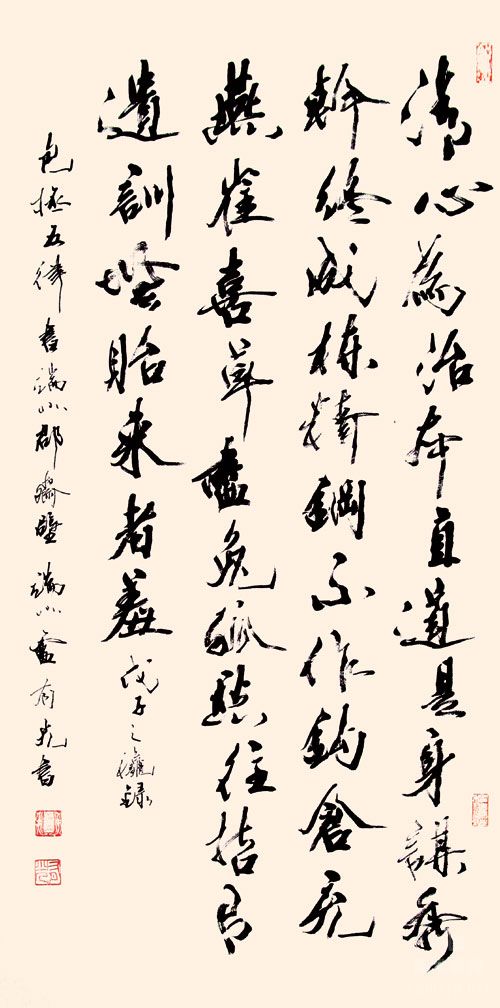 清心為治本直道是身謀秀
幹終成棟精鋼不作鈎倉充
燕雀喜草盡兔狐愁往哲有
遺訓貽來者羞 戊子之錄
包拯五律書端州郡齋壁 端州盧有光書